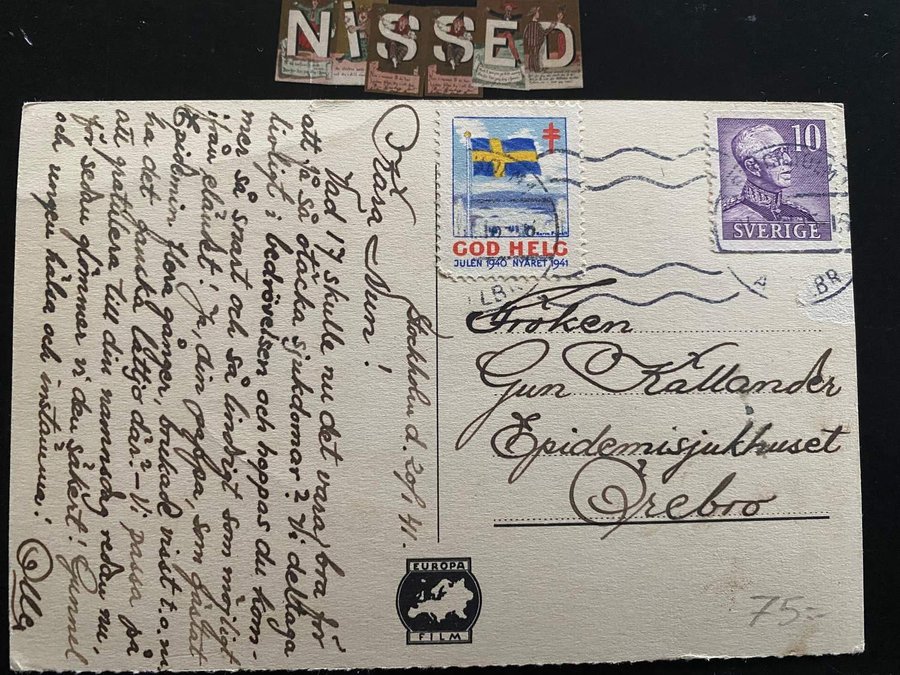 NISSED
Stockholm d. 20/1 41.
Kära
Vad 17 skulle nu det vara bra för
att få så otäcka sjukdomar? Vi deltaga
livligt i bedrövelsen och hoppas du kom-
mer så snart och så lindrigt som möjligt
ifrån eländet. Ja, din pappa, som gästat
Epidemin flera gånger, brukade visst t.o.m.
ha det ganska där? – Vi passa på
att gratulera till din namnsdag redan nu,
för sedan glömmer vi den säkert! Gunnel
och ungen hälsa och instämma!
Olle
GOD HELG
JULEN 1940 NYÅRET 1941
10
SVERIGE
Fröken
Gun Källander
Epidemisjukhuset
Örebro
EUROPA
FILM
75:-